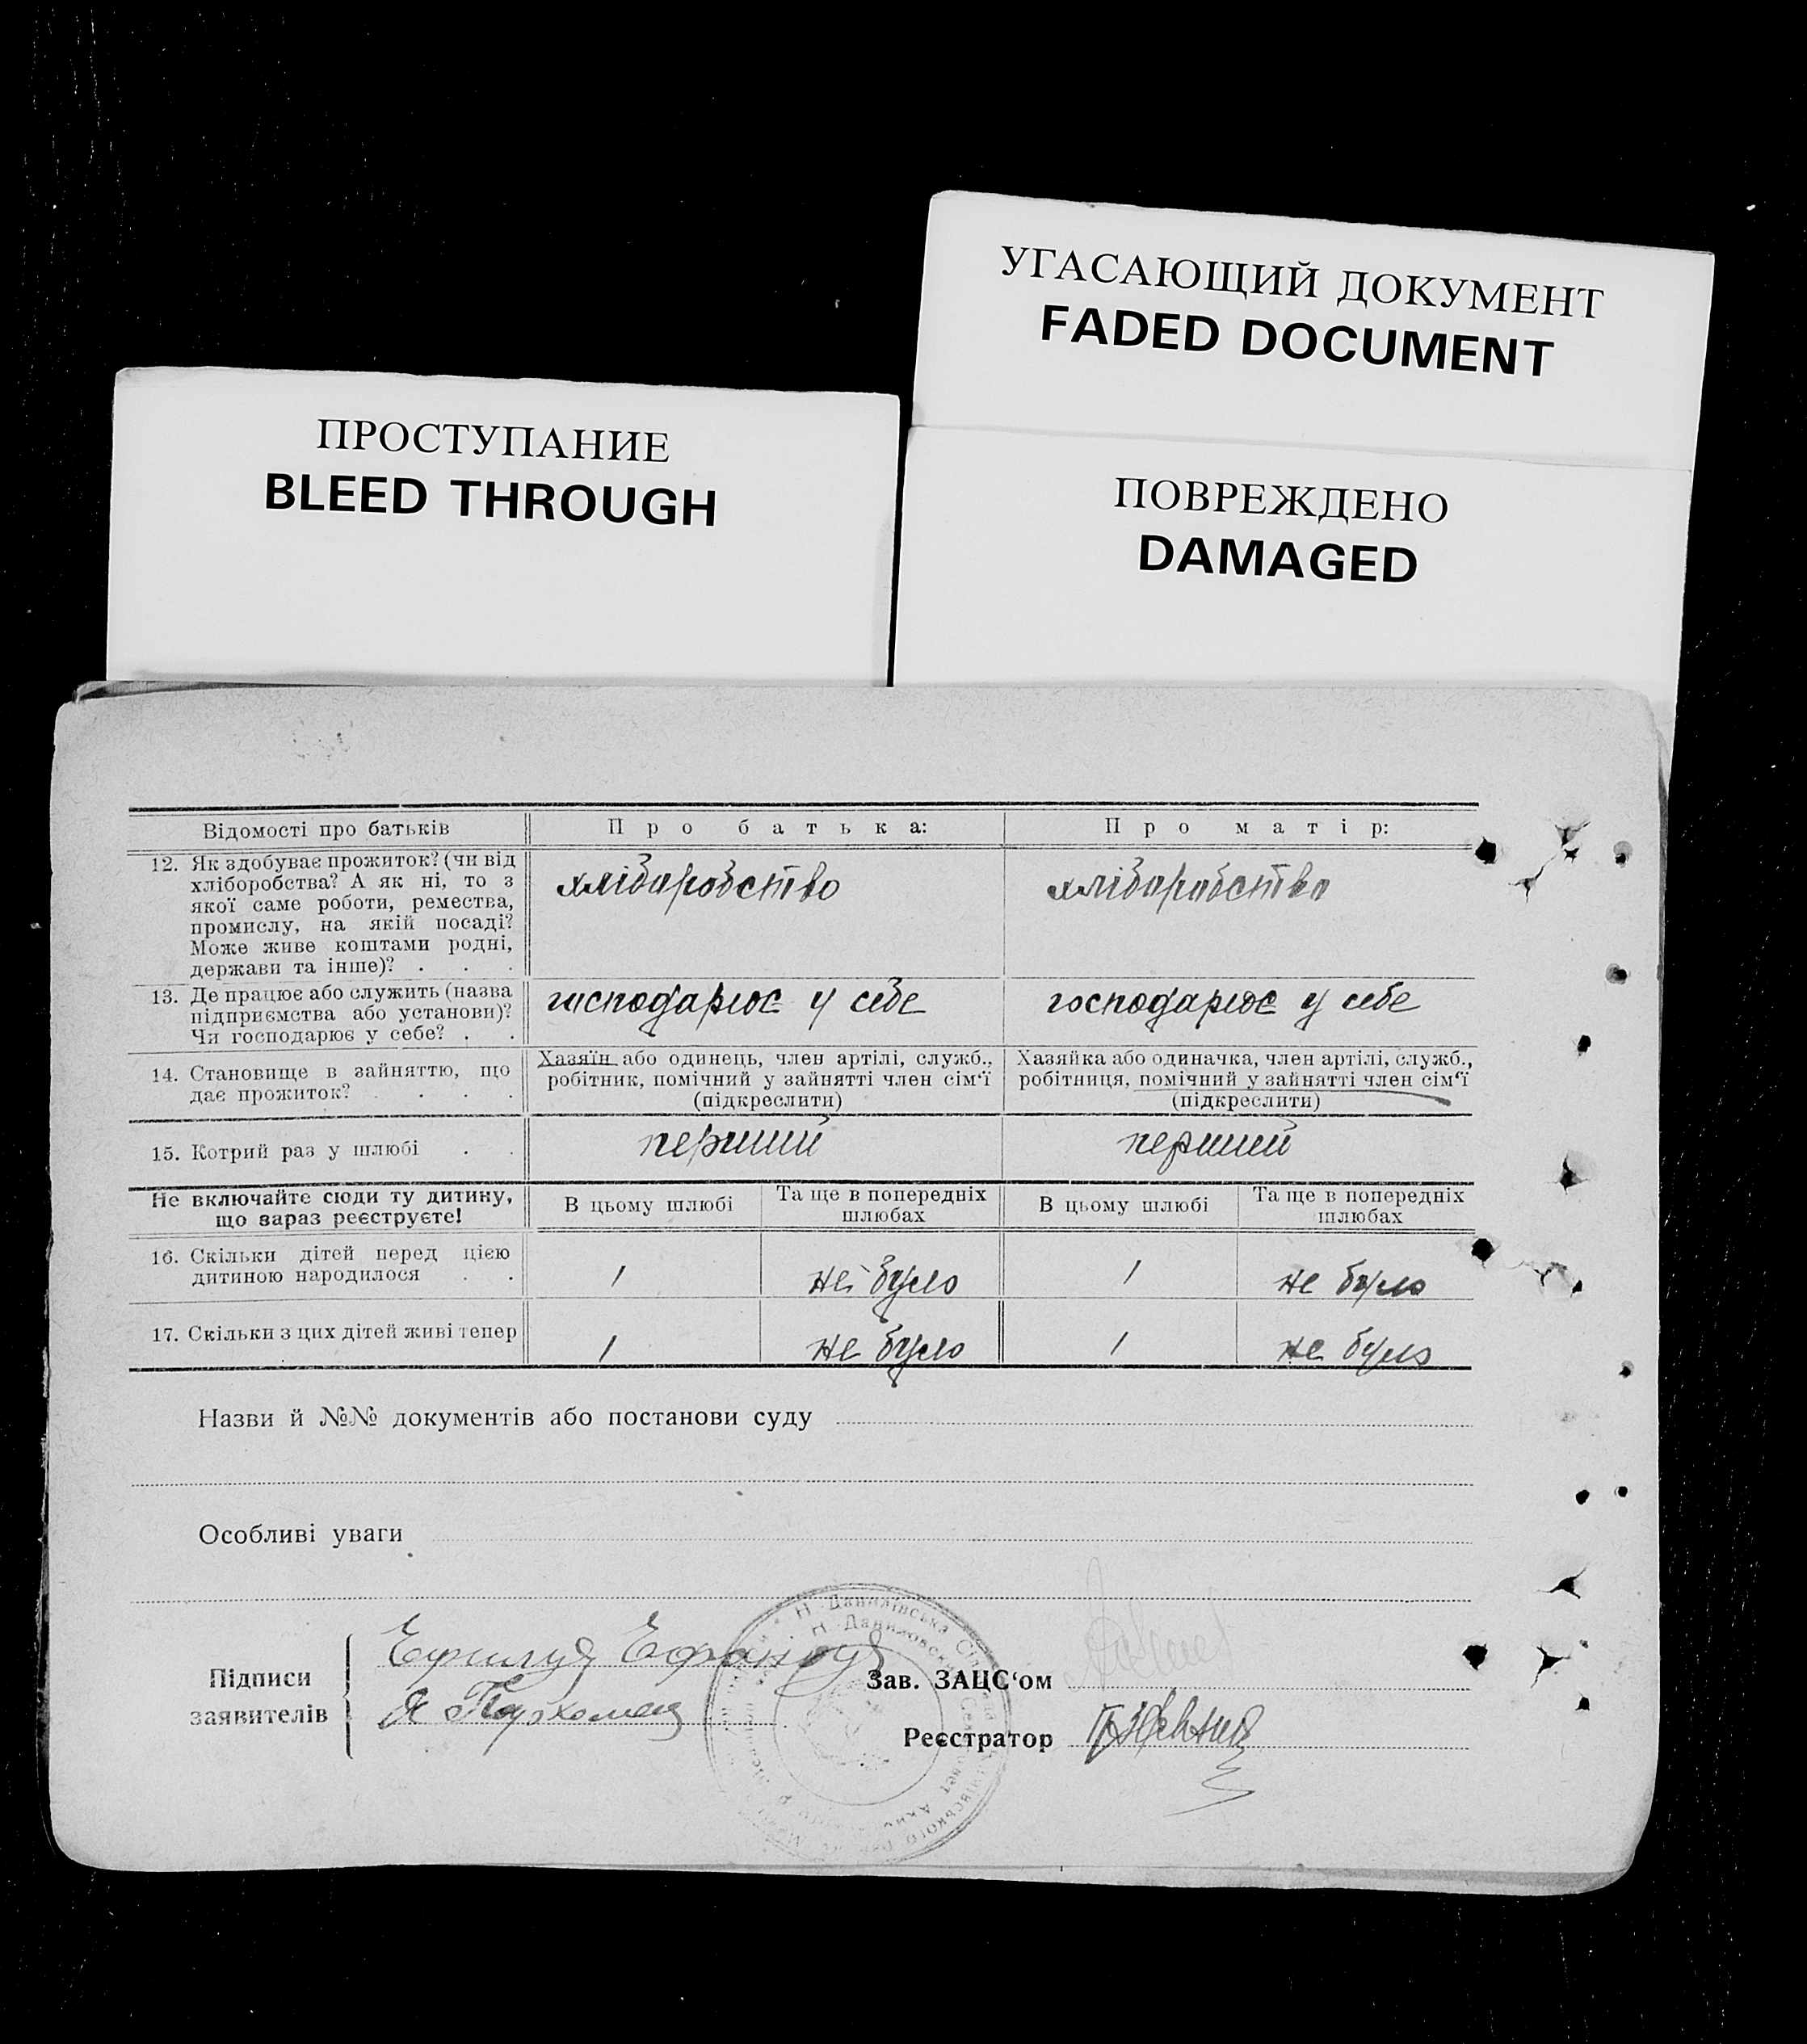 УГАСАЮЩИЙ ДОКУМЕНТ
FADED DOCUMENT
ПРОСТУПАНИЕ
BLEED THROUGH
ПОВРЕЖДЕНО
DAMAGED
Відомості про батьків
Про батька:
Про матір:
12. Як здобуває прожиток? (чи від
хліборобства? А як ні, то з
якої саме роботи, ремества,
промислу, на якій посаді?
Може живе коштами родні,
держави та інше)? . . .
хліборобство
хліборобство
13. Де працює або служить (назва
підприємства або установи)?
Чи господарює у себе? . .
господарює у себе
господарює у себе
14. Становище в зайняттю, що
дає прожиток? . . . .
Хазяїн або одинець, член артілі, служб.,
робітник, помічний у зайнятті член сім'ї
(підкреслити)
Хазяйка або одиначка, член артілі, служб.,
робітниця, помічний у зайнятті член сім'ї
(підкреслити)
15. Котрий раз у шлюбі . .
перший
перший
Не включайте сюди ту дитину,
що зараз реєструєте!
В цьому шлюбі
Та ще в попередніх
шлюбах
В цьому шлюбі
Та ще в попередніх
шлюбах
16. Скільки дітей перед цією
дитиною народилося . .
1
не було
1
не було
17. Скільки з цих дітей живі тепер
1
не було
1
не було
Назви й №№ документів або постанови суду
Особливі уваги
Підписи
заявителів
Зав. ЗАЦС'ом
Реєстратор